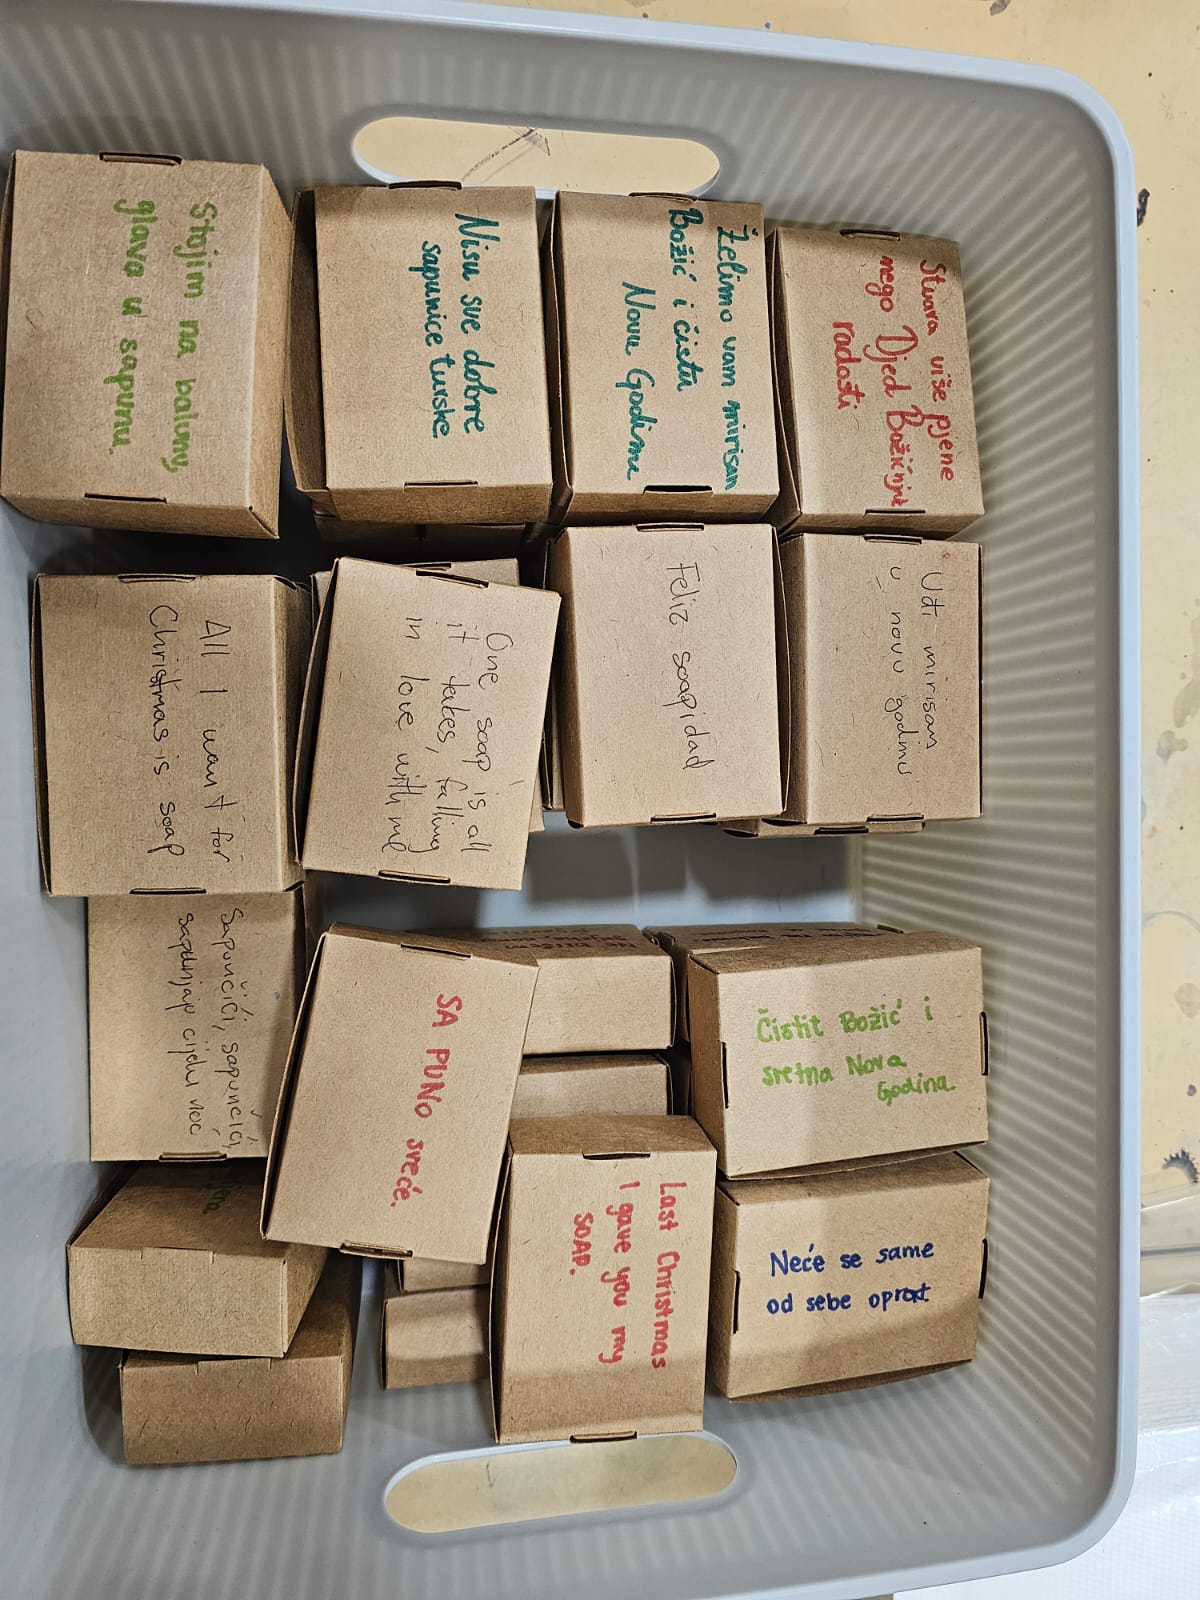 Stojim na balunu,
glava u sapunu.
Nisu sve dobre
sapunice turske.
Želimo vam mirisan
Božić i čistu
Novu Godinu
Stvara više pjene
nego Djed Božićnjak
radosti
All I want for
Christmas is soap
One soap is all
it takes, falling
in love with me
Feliz soapidad
Uđi mirisan
u novu godinu
Sapunčići, sapunčići,
sapunjaju cijelu noć
SA PUNO sreće.
Čistit Božić i
sretna Nova
Godina.
Last Christmas
I gave you my
SOAP.
Neće se same
od sebe oprat